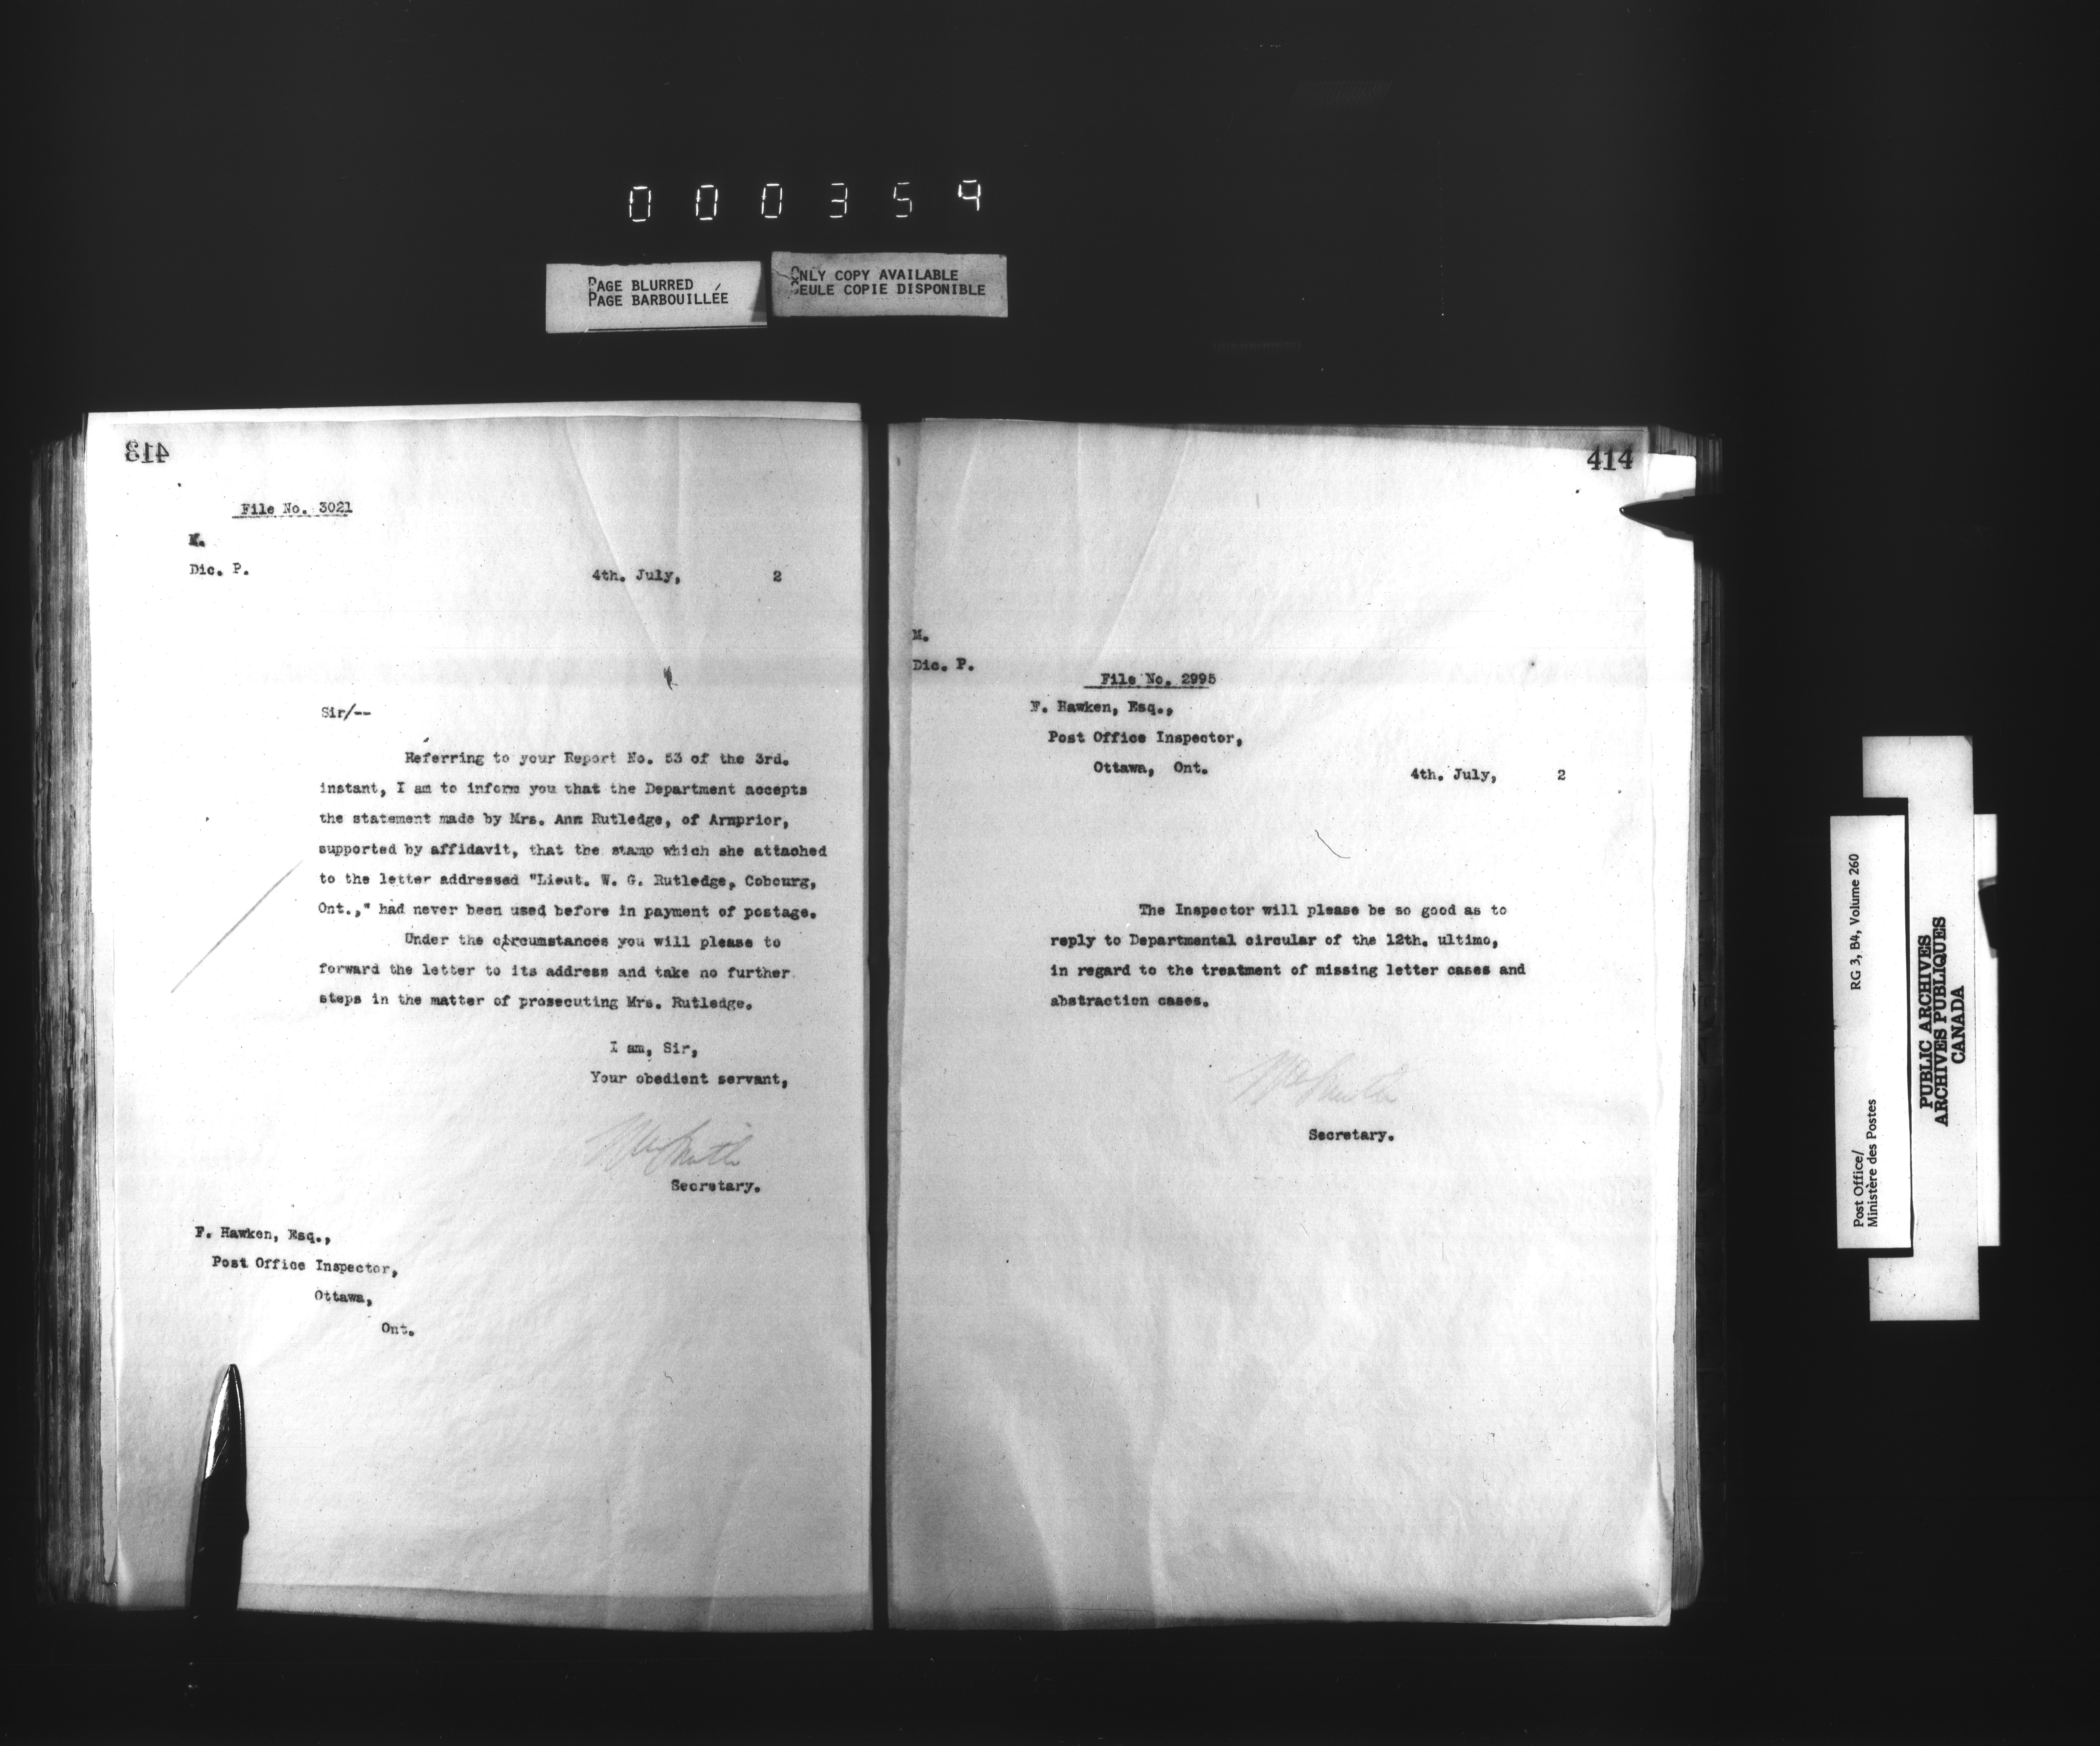 000359
PAGE BLURRED
PAGE BARBOUILLÉE
ONLY COPY AVAILABLE
SEULE COPIE DISPONIBLE
413
File No. 3021
M.
Dic. P.
4th. July, 2
Sir/--
Referring to your Report No. 53 of the 3rd.
instant, I am to inform you that the Department accepts
the statement made by Mrs. Ann Rutledge, of Arnprior,
supported by affidavit, that the stamp which she attached
to the letter addressed "Lieut. W. G. Rutledge, Cobourg,
Ont.," had never been used before in payment of postage.
Under the circumstances you will please to
forward the letter to its address and take no further
steps in the matter of prosecuting Mrs. Rutledge.
I am, Sir,
Your obedient servant,
Secretary.
F. Hawken, Esq.,
Post Office Inspector,
Ottawa,
Ont.
414
M.
Dic. P.
File No. 2995
F. Hawken, Esq.,
Post Office Inspector,
Ottawa, Ont.
4th. July, 2
The Inspector will please be so good as to
reply to Departmental circular of the 12th. ultimo,
in regard to the treatment of missing letter cases and
abstraction cases.
Secretary.
Post Office/
Ministère des Postes
RG 3, B4, Volume 260
PUBLIC ARCHIVES
ARCHIVES PUBLIQUES
CANADA